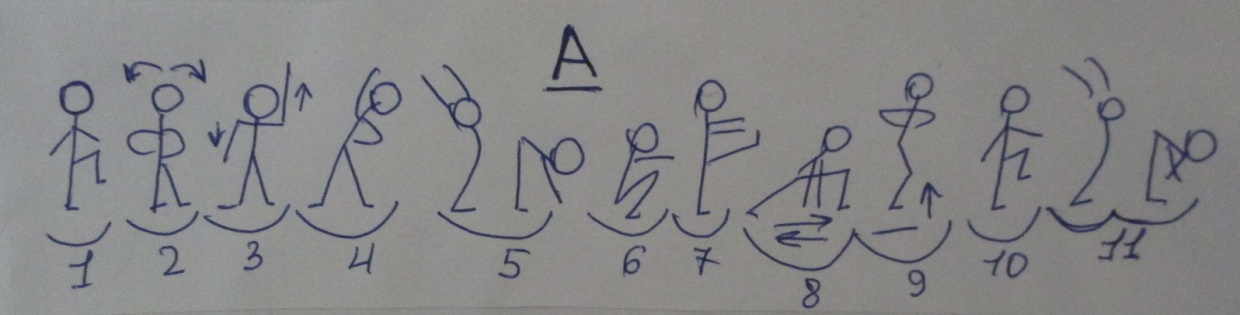 A
1 2 3 4 5 6 7 8 9 10 11